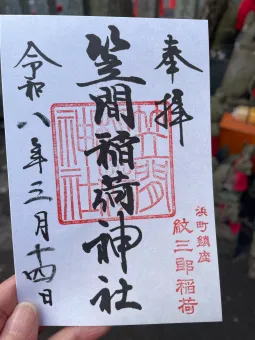 奉拝
浜町鎮座
紋三郎稲荷
笠間稲荷神社
笠間神社
令和八年三月十四日